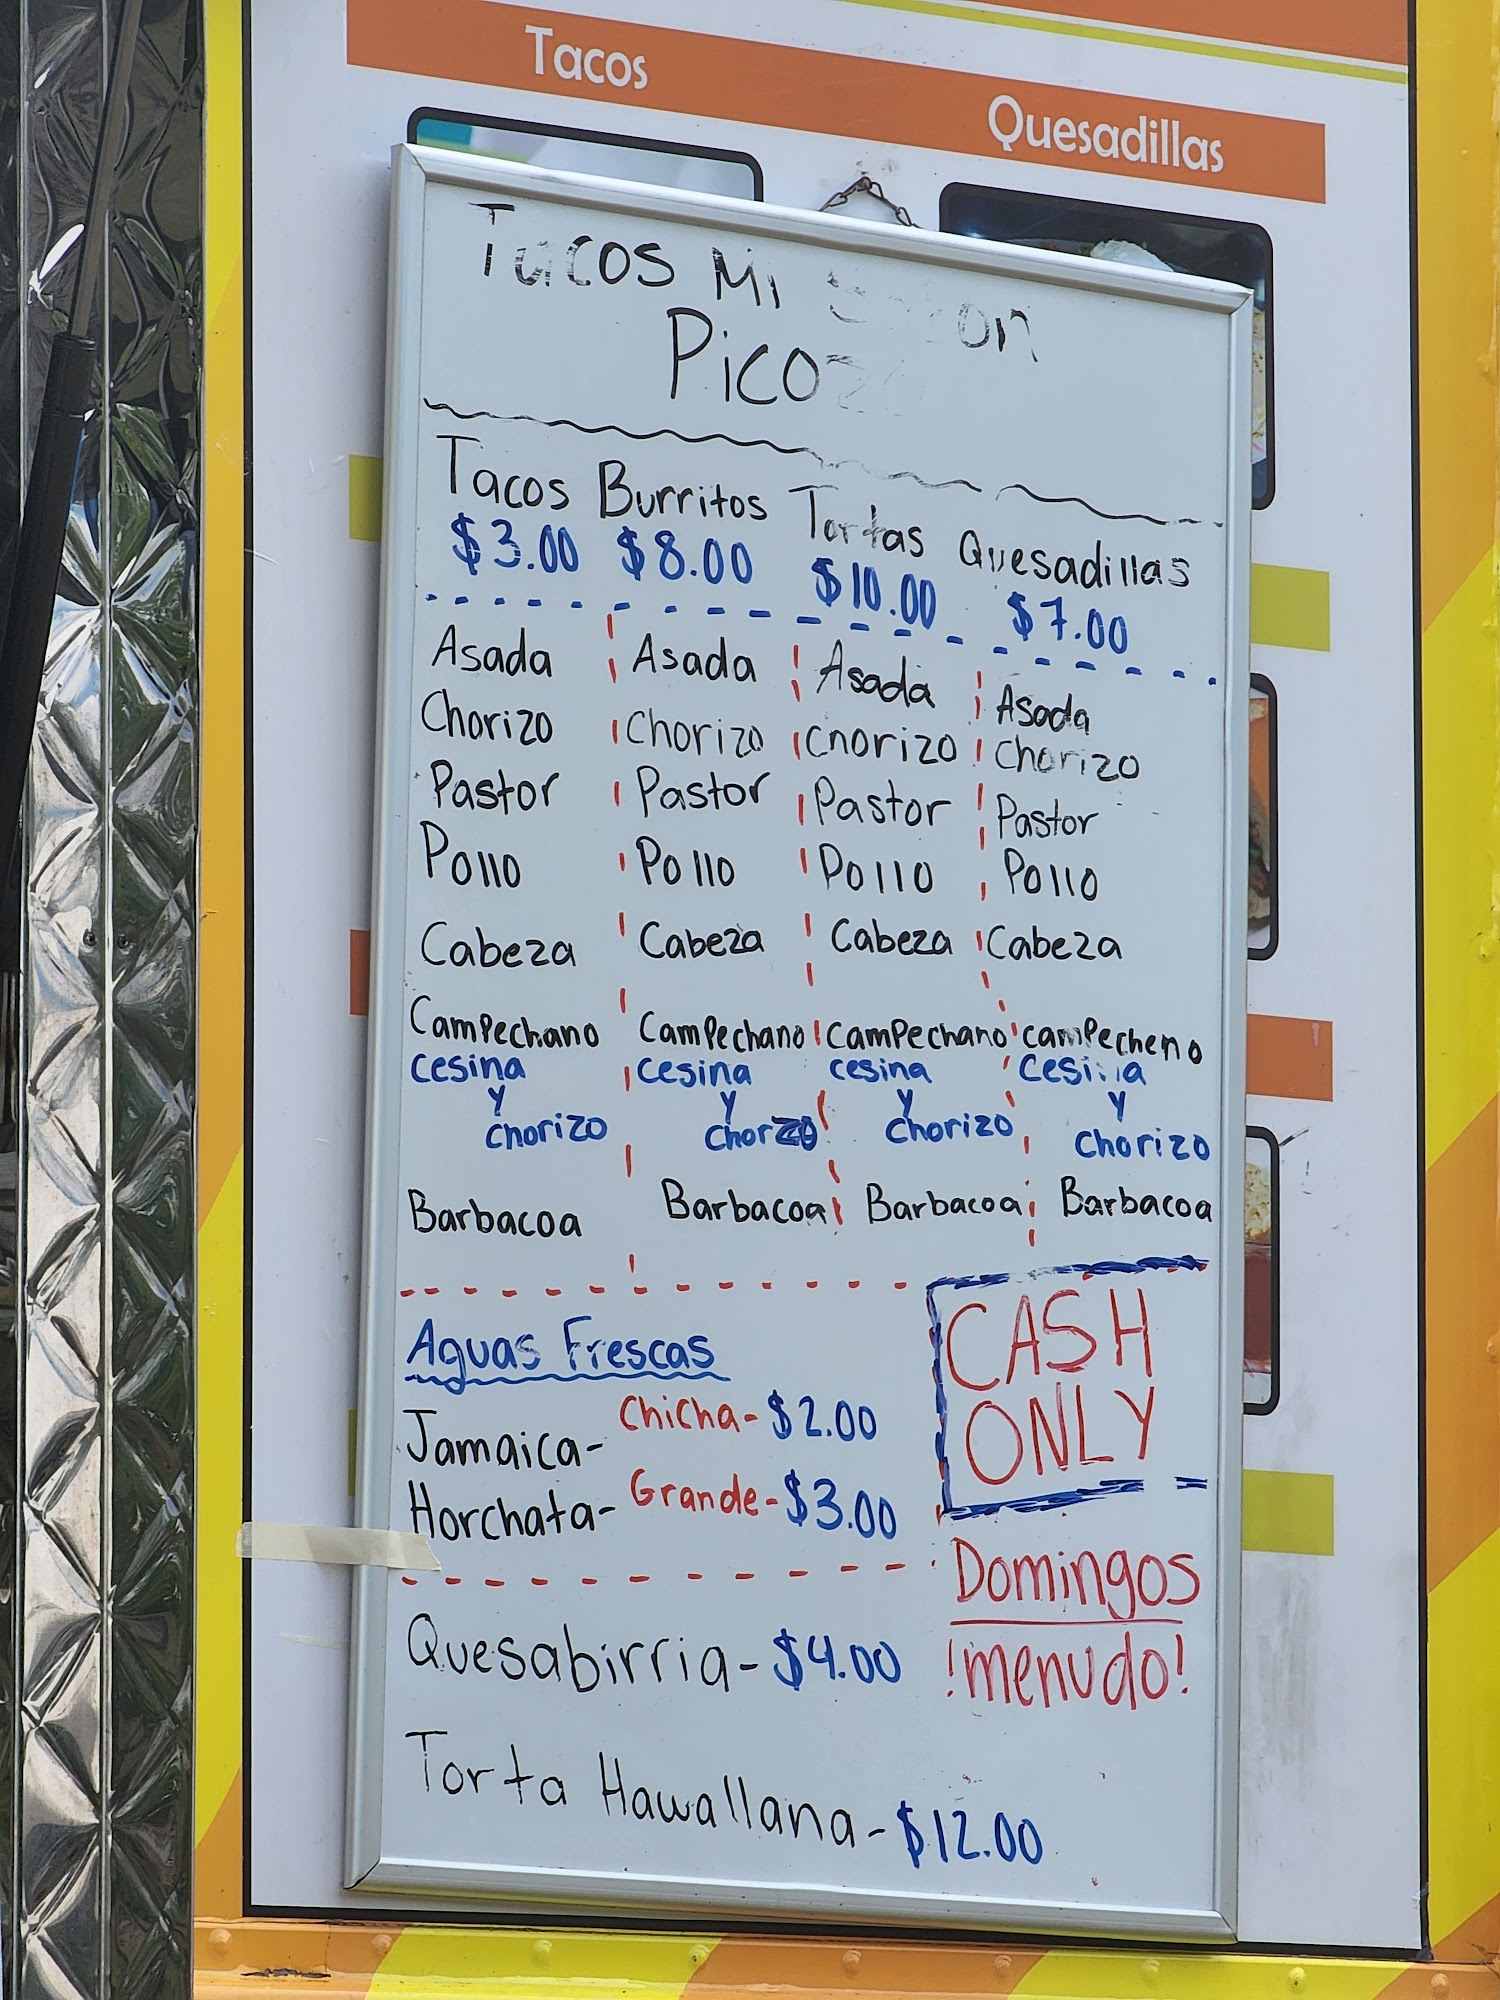 Tacos
Quesadillas
Tacos Mi Sazon
Pico
Tacos Burritos Tortas Quesadillas
$3.00 $8.00 $10.00 $7.00
Asada Asada Asada Asada
Chorizo Chorizo Chorizo Chorizo
Pastor Pastor Pastor Pastor
Pollo Pollo Pollo Pollo
Cabeza Cabeza Cabeza Cabeza
Campechano Campechano Campechano campecheno
cesina cesina cesina cesina
y y y y
chorizo chorzo chorizo chorizo
Barbacoa Barbacoa Barbacoa Barbacoa
CASH
ONLY
Aguas Frescas
Jamaica- Chicha- $2.00
Horchata- Grande- $3.00
Domingos
!menudo!
Quesabirria- $4.00
Torta Hawallana- $12.00